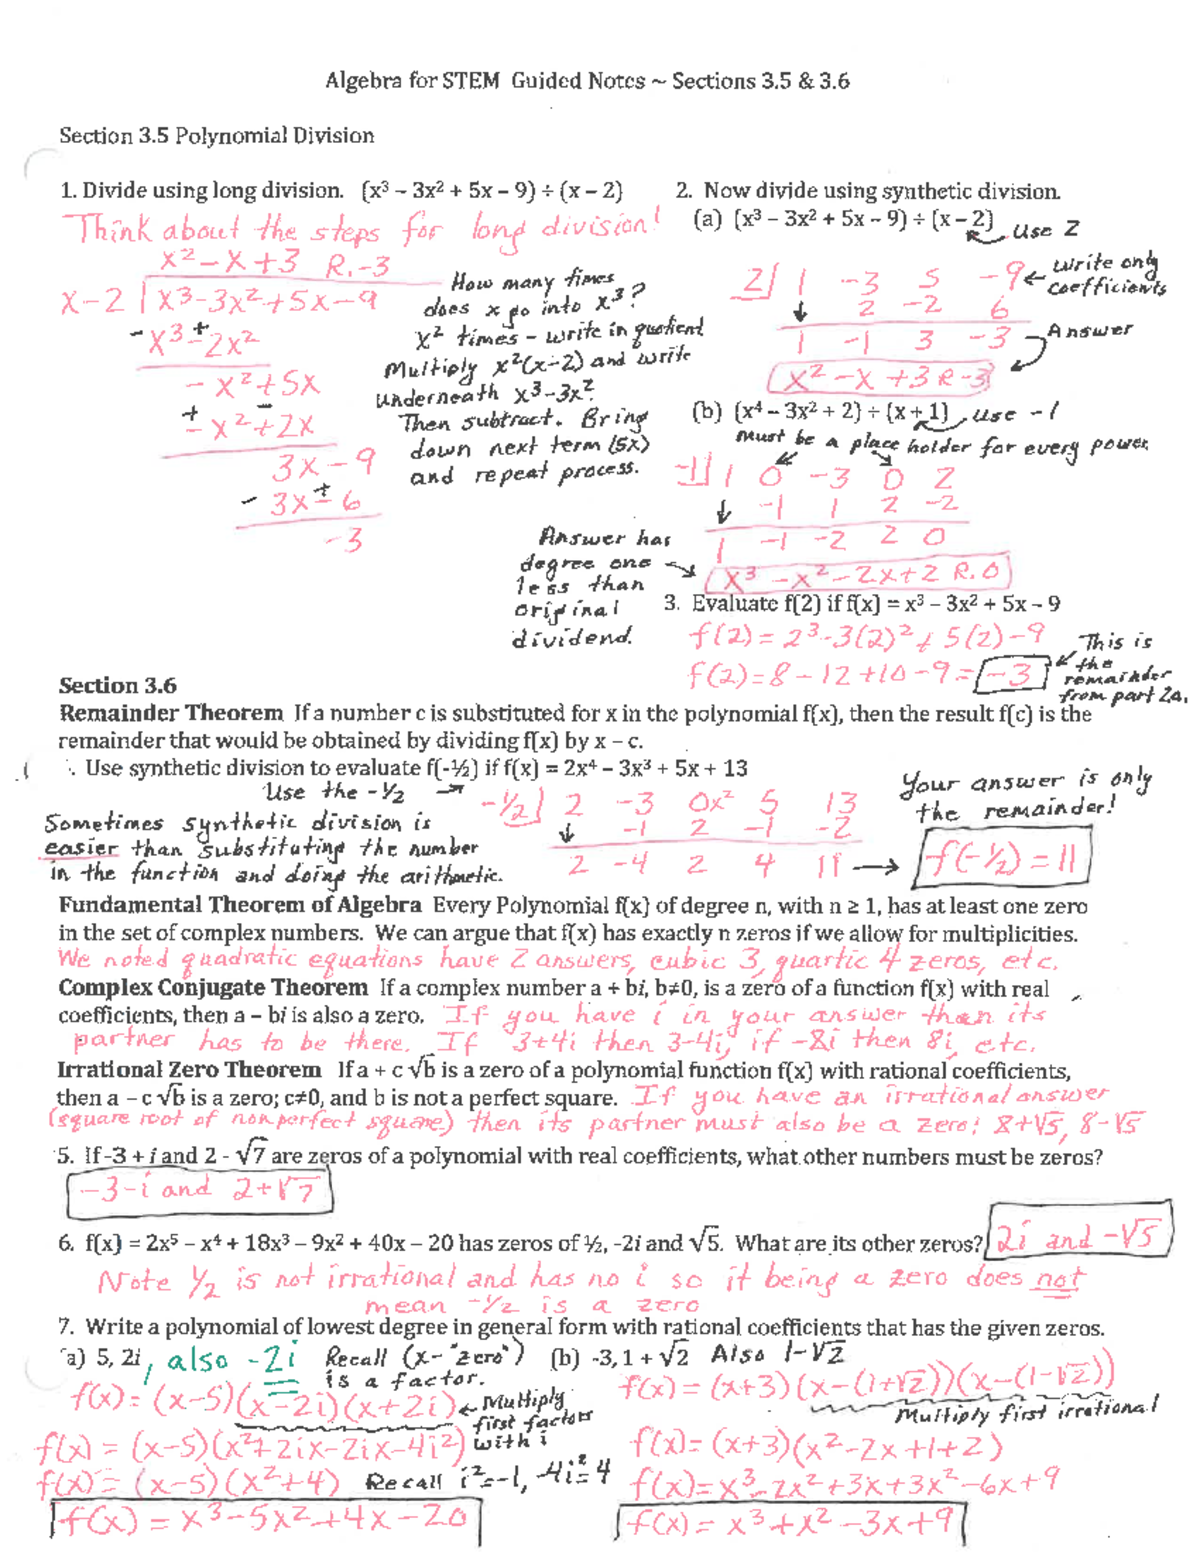 Algebra for STEM Guided Notes ~ Sections 3.5 & 3.6
Section 3.5 Polynomial Division
1. Divide using long division. (x³ – 3x² + 5x – 9) ÷ (x – 2)
Think about the steps for long division!
x² – x + 3 R. -3
x – 2 | x³ – 3x² + 5x – 9
- x³ +- 2x²
- x² + 5x
+- x² +- 2x
3x – 9
- 3x +- 6
-3
How many times
does x go into x³?
x² times – write in quotient
Multiply x²(x-2) and write
underneath x³-3x².
Then subtract. Bring
down next term (5x)
and repeat process.
2. Now divide using synthetic division.
(a) (x³ – 3x² + 5x – 9) ÷ (x – 2) use 2
2| 1 -3 5 -9 ← write only coefficients
2 -2 6
1 -1 3 -3 Answer
x² – x + 3 R -3
(b) (x⁴ – 3x² + 2) ÷ (x + 1) use -1
must be a place holder for every power
-1| 1 0 -3 0 2
-1 1 2 -2
1 -1 -2 2 0
x³ – x² – 2x + 2 R. 0
Answer has
degree one
less than
original
dividend.
3. Evaluate f(2) if f(x) = x³ – 3x² + 5x – 9
f(2) = 2³ - 3(2)² + 5(2) – 9
f(2) = 8 – 12 + 10 – 9 = -3
This is
the
remainder
from part 2a.
Section 3.6
Remainder Theorem If a number c is substituted for x in the polynomial f(x), then the result f(c) is the
remainder that would be obtained by dividing f(x) by x – c.
. Use synthetic division to evaluate f(-½) if f(x) = 2x⁴ – 3x³ + 5x + 13
Use the -½ →
Sometimes synthetic division is
easier than substituting the number
in the function and doing the arithmetic.
-½| 2 -3 0x² 5 13
-1 2 -1 -2
2 -4 2 4 11 →
Your answer is only
the remainder!
f(-½) = 11
Fundamental Theorem of Algebra Every Polynomial f(x) of degree n, with n ≥ 1, has at least one zero
in the set of complex numbers. We can argue that f(x) has exactly n zeros if we allow for multiplicities.
We noted quadratic equations have 2 answers, cubic 3, quartic 4 zeros, etc.
Complex Conjugate Theorem If a complex number a + bi, b≠0, is a zero of a function f(x) with real
coefficients, then a – bi is also a zero. If you have i in your answer than its
partner has to be there. If 3+4i then 3-4i, if -8i then 8i, etc.
Irrational Zero Theorem If a + c √b is a zero of a polynomial function f(x) with rational coefficients,
then a – c √b is a zero; c≠0, and b is not a perfect square. If you have an irrational answer
(square root of nonperfect square) then its partner must also be a zero: 8+√5, 8-√5
5. If -3 + i and 2 - √7 are zeros of a polynomial with real coefficients, what other numbers must be zeros?
-3-i and 2+√7
6. f(x) = 2x⁵ – x⁴ + 18x³ – 9x² + 40x – 20 has zeros of ½, -2i and √5. What are its other zeros? 2i and -√5
Note ½ is not irrational and has no i so it being a zero does not
mean -½ is a zero
7. Write a polynomial of lowest degree in general form with rational coefficients that has the given zeros.
a) 5, 2i, also -2i Recall (x-"zero")
is a factor.
f(x) = (x-5)(x-2i)(x+2i) ← Multiply
first factors
with i
f(x) = (x-5)(x²+2ix-2ix-4i²)
f(x) = (x-5)(x²+4) Recall i²=-1, -4i²=4
f(x) = x³-5x²+4x-20
(b) -3, 1 + √2 Also 1-√2
f(x) = (x+3)(x-(1+√2))(x-(1-√2))
Multiply first irrational
f(x) = (x+3)(x²-2x+1+2)
f(x) = x³-2x²+3x+3x²-6x+9
f(x) = x³+x²-3x+9